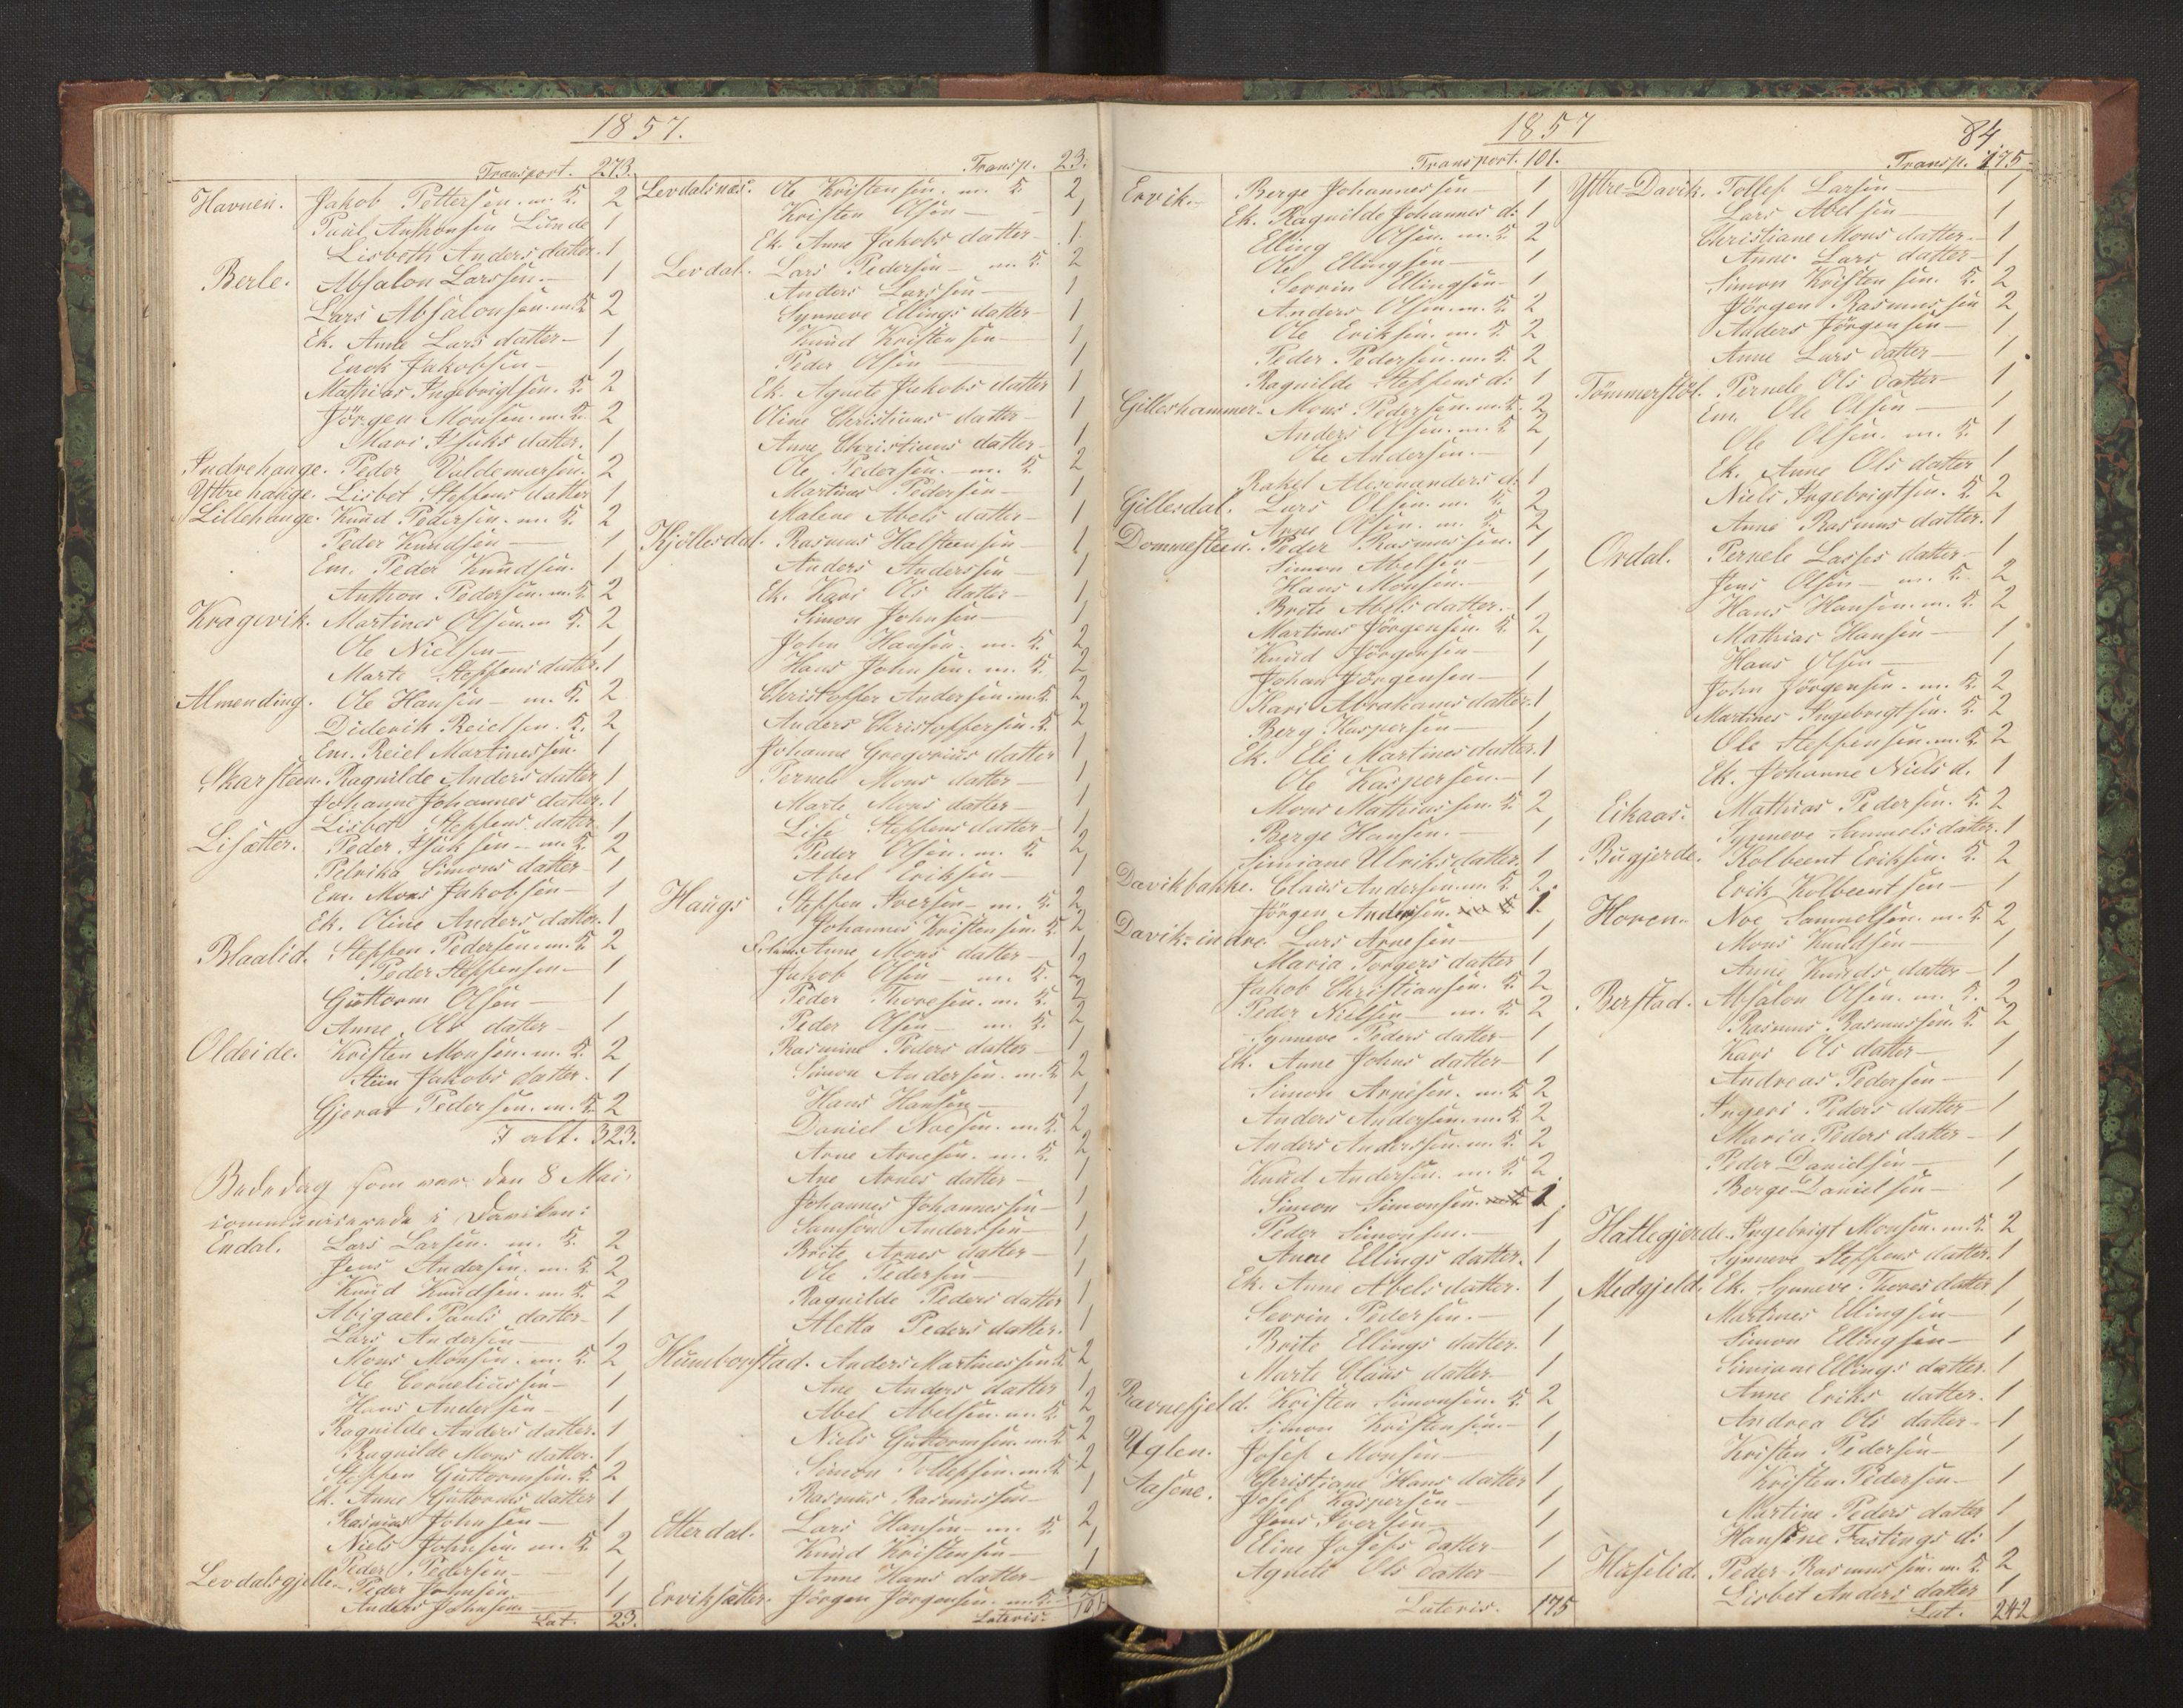 1857.
Transport. 273.
Havnen. Jakob Pettersen. m. K. 2
Paul Anthonsen Lunde 1
Lisbeth Anders datter. 1
Berle. Absalon Larssen. 1
Lars Absalonsen. m K 2
Ek. Anne Lars datter 1
Enok Jakobsen 1
Mathias Ingebrigtsen. K. 2
Jörgen Monsen. m. K. 2
Mari Isaks datter. 1
Indrehauge. Peder Valdemarsen. 2
Yttrehauge. Lisbet Steffens datter 1
Lillehauge. Knud Pedersen. m. K. 2
Peder Knudsen 1
Em. Peder Knudsen. 1
Anthon Pedersen. m. K 2
Kragevik. Martines Olsen. m K. 2
Ole Nielsen 1
Marte Steffens datter. 1
Almending. Ole Hansen m. K. 2
Diderik Reielsen. K. 2
Em. Reiel Martinessen. 1
Skarsteen. Ragnilde Anders datter 1
Johanne Johannes datter. 1
Lisbet Steffens datter 1
Lisætter. Peder Isaksen m. K 2
Petrika Simons datter 1
Em. Mons Jakobsen 1
Ek. Oline Anders datter. 1
Blaalid. Steffen Pedersen. m. K 2
Peder Steffensen 1
Guttorm Olsen 1
Anne Ols datter 1
Oldeide. Kristen Monsen. m. K. 2
Jakobs datter. 1
Gjerat Pedersen. m. K. 2
I alt. 323.
Bededag som var den 8 Mai.
communiserede i Daviken:
Endal. Lars Larsen. m. K. 2
Jens Andersen. m. K 2
Knud Knudsen. m. K. 2
Abigael Pauls datter 1
Lars Andersen 1
Mons Monsen. m. K. 2
Ole Corneliussen 1
Hans Andersen 1
Ragnilde Anders datter. 1
Ragnilde Mons datter. 1
Steffen Guttormsen. K. 2
Ek. Anne Guttorms datter 1
Rasmus Johnsen 1
Niels Johnsen. m. K 2
Peder Pedersen 1
Levdalsgjelle. Peder Johnsen 1
Anders Johnsen 1
Lat. 23.
Transp. 23.
Levdalsnæs. Ole Kristensen. m. K. 2
Kristen Olsen 1
Ek. Anne Jakobs datter 1.
Levdal. Lars Pedersen m. K. 2
Anders Larssen 1
Synneve Ellings datter 1
Knud Kristensen 1
Peder Olsen 1
Ek. Agnete Jakobs datter 1
Oline Christians datter 1
Anne Christians datter 1
Ole Pedersen. m. K. 2
Martines Pedersen 1
Malene Abels datter 1
Kjöllesdal. Rasmus Halsteensen 1
Anders Anderssen 1
Ek. Kari Ols datter 1
Simon Johnsen 1
John Hansen. m. K. 2
Hans Johnsen. m. K. 2
Christoffer Andersen. m. K. 2
Anders Christoffersen. K. 2
Johanne Gregorius datter 1
Pernele Mons datter 1
Marte Mons datter 1
Lise Steffens datter 1
Peder Olsen. m. K. 2
Abel Eriksen 1
Haugs Steffen Iversen m. K. 2
Johannes Kristensen. K 2
Anne Mons datter 1
Jakob Olsen m. K. 2
Peder Thoresen. m. K. 2
Peder Olsen m. K. 2
Rasmine Peders datter 1
Simon Andersen. m. K 2
Hans Hansen 1
Daniel Noesen. m. K. 2
Arne Arnesen. m. K. 2
Ane Arnes datter 1
Johannes Johannessen 1
Samson Anderssen 1
Brite Arnes datter 1
Ole Pedersen 1
Ragnilde Peders datter 1
Aletta Peders datter. 1
Humborstad. Anders Martinessen K 2
Ane Anders datter 1
Abel Abelsen. m. K. 2
Niels Guttormsen. m. K 2
Simon Tollefsen. m. K 2
Rasmus Rasmussen 1
Etterdal. Lars Hansen m. K. 2
Knud Kristensen 1
Anne Hans datter 1
Erviksætter. Jörgen Jörgensen. m. K.
Lateris. 101
1857
84
Transport. 101.
Ervik. Berge Johannessen 1
Ek. Ragnilde Johannes d: 1
Elling Olsen. m. K 2
Ole Ellingsen 1
Serrin Ellingsen 1
Anders Olsen. m. K. 2
Ole Eriksen. m. K. 2
Peder Pedersen. m. K. 2
Ragnilde Steffens d: 1
Gilleshammer. Mons Pedersen. m. K. 2
Anders Olsen. m. K 2
Ole Andersen. 1
Rakel Alexanders d: 1
Gillesdal. Lars Olsen. m. K. 2
Arne Olsen. m. K. 2
Dommesteen. Peder Rasmussen. 1
Simon Abelsen 1
Hans Monsen. 1
Brite Abels datter. 1
Martines Jörgensen. K. 2
Knud Jörgensen 1
Johan Jörgensen 1
Kari Abrahams datter. 1
Berg Kaspersen 1
Ek. Eli Martines datter. 1
Ole Kaspersen. 1
Mons Mathiassen. K. 2
Berge Hansen. 1
Simiane Ulriks datter. 1
Davikbakke. Claus Andersen. m. K. 2.
Jörgen Andersen. 1.
Davik-indre. Lars Arnesen 1
Maria Torgers datter 1
Jakob Christiansen. K. 2
Peder Nielsen m. K. 2
Synneve Peders datter 1
Ek. Anne Johns datter 1
Simon Arnesen. m. K 2
Anders Andersen. m. K 2
Anders Anderssen. m. K. 2
Knud Andersen. m. K 2
Simon Simonsen. 1
Peder Simonsen. 1
Anne Ellings datter. 1
Ek. Anne Abels datter. 1
Serrin Pedersen. 1
Brite Ellings datter. 1
Marte Claus datter 1
Ravnefjeld. Kristen Simonsen. K. 2
Simon Kristensen. 1
Yglen. Josef Monsen 1
Aasene. Christiane Hans datter 1
Josef Kaspersen 1
Jens Iversen 1
Eline Josefs datter 1
Agnete Ols datter 1
Lateris. 175
Transp. 175
Yttre-Davik. Tollef Larsen 1
Lars Abelsen 1
Christiane Mons datter 1
Anne Lars datter 1
Simon Kristensen. K. 2
Jörgen Rasmussen 2
Anders Jörgensen 1
Anne Lars datter 1.
Tömmerstöl. Pernele Ols datter 1
Em. Ole Olsen 1
Ole Olsen. m. K. 1
Ek. Anne Ols datter 1
Niels Ingebrigtsen. K. 2
Anne Rasmus datter. 1
Ordal. Pernele Lasses datter 1
Jens Olsen m. K. 2
Hans Hansen. m. K. 2
Mathias Hansen 1
Hans Olsen 1
John Jörgensen. m. K. 2
Martines Ingebrigtsen. K. 2
Ole Steffensen. m. K. 2
Ek. Johanne Niels d. 1
Eikaas. Mathias Pedersen. K. 2
Synneve Samuels datter. 1
Bugjerde. Kolbeent Eriksen. K. 2
Erik Kolbeentsen 1
Hoven. Noe Samuelsen. m. K 2
Mons Knudsen 1
Anne Knuds datter 1
Berstad. Absalon Olsen. m. K. 2
Rasmus Rasmussen. K. 2
Kari Ols datter 1
Andreas Pedersen 1
Ingeri Peders datter 1
Maria Peders datter 1
Peder Danielsen 1
Berge Danielsen 1
Hatlegjerde. Ingebrigt Monsen. m. K. 2
Synneve Steffens datter. 1
Medgjeld. Ek. Synneve Thores datter 1
Martines Ellingsen 1
Simon Ellingsen 1
Simiane Ellings datter. 1
Anne Eriks datter. 1
Andrea Ols datter 1
Kristen Pedersen 1
Kristen Pedersen 1
Martine Peders datter 1
Hansine Fastings d: 1
Haselid. Peder Rasmussen. m. K. 2
Lisbet Anders datter 1
Lat. 242